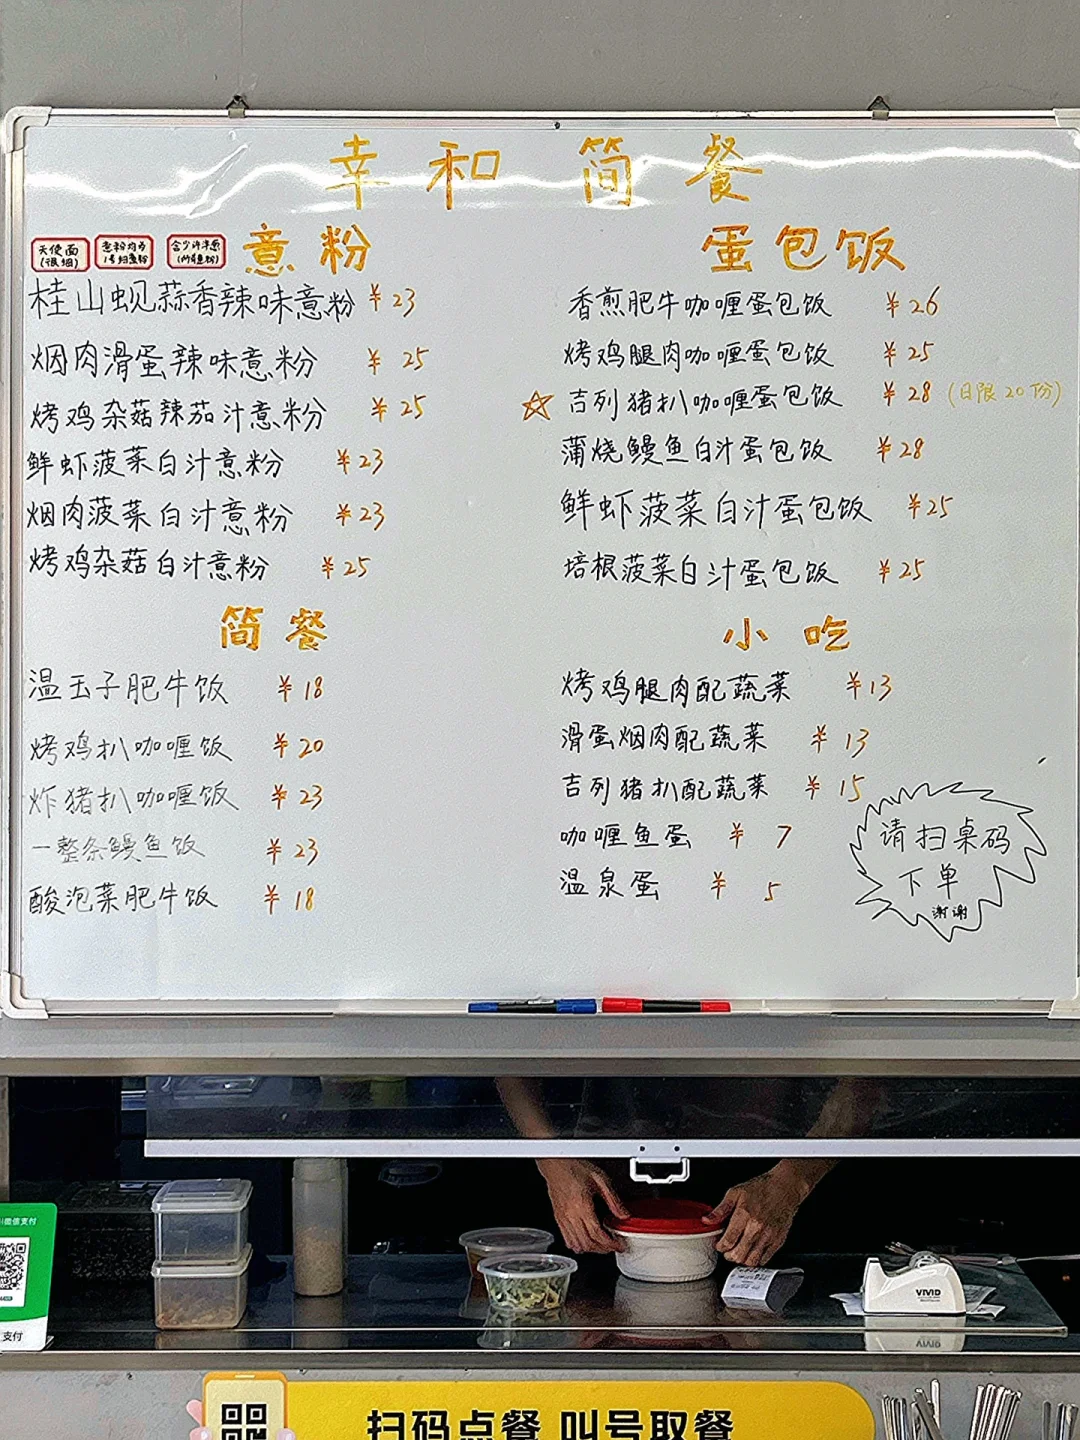 幸和简餐
天使面
(很细)
意粉均为
1号细意粉
含少许洋葱
(所有意粉)
意粉
桂山蚬蒜香辣味意粉 ¥23
烟肉滑蛋辣味意粉 ¥25
烤鸡杂菇辣茄汁意粉 ¥25
鲜虾菠菜白汁意粉 ¥23
烟肉菠菜白汁意粉 ¥23
烤鸡杂菇白汁意粉 ¥25
蛋包饭
香煎肥牛咖喱蛋包饭 ¥26
烤鸡腿肉咖喱蛋包饭 ¥25
☆ 吉列猪扒咖喱蛋包饭 ¥28 (日限20份)
蒲烧鳗鱼白汁蛋包饭 ¥28
鲜虾菠菜白汁蛋包饭 ¥25
培根菠菜白汁蛋包饭 ¥25
简餐
温玉子肥牛饭 ¥18
烤鸡扒咖喱饭 ¥20
炸猪扒咖喱饭 ¥23
一整条鳗鱼饭 ¥23
酸泡菜肥牛饭 ¥18
小吃
烤鸡腿肉配蔬菜 ¥13
滑蛋烟肉配蔬菜 ¥13
吉列猪扒配蔬菜 ¥15
咖喱鱼蛋 ¥7
温泉蛋 ¥5
请扫桌码
下单
谢谢
微信支付
支付
VIVID
扫码点餐 叫号取餐